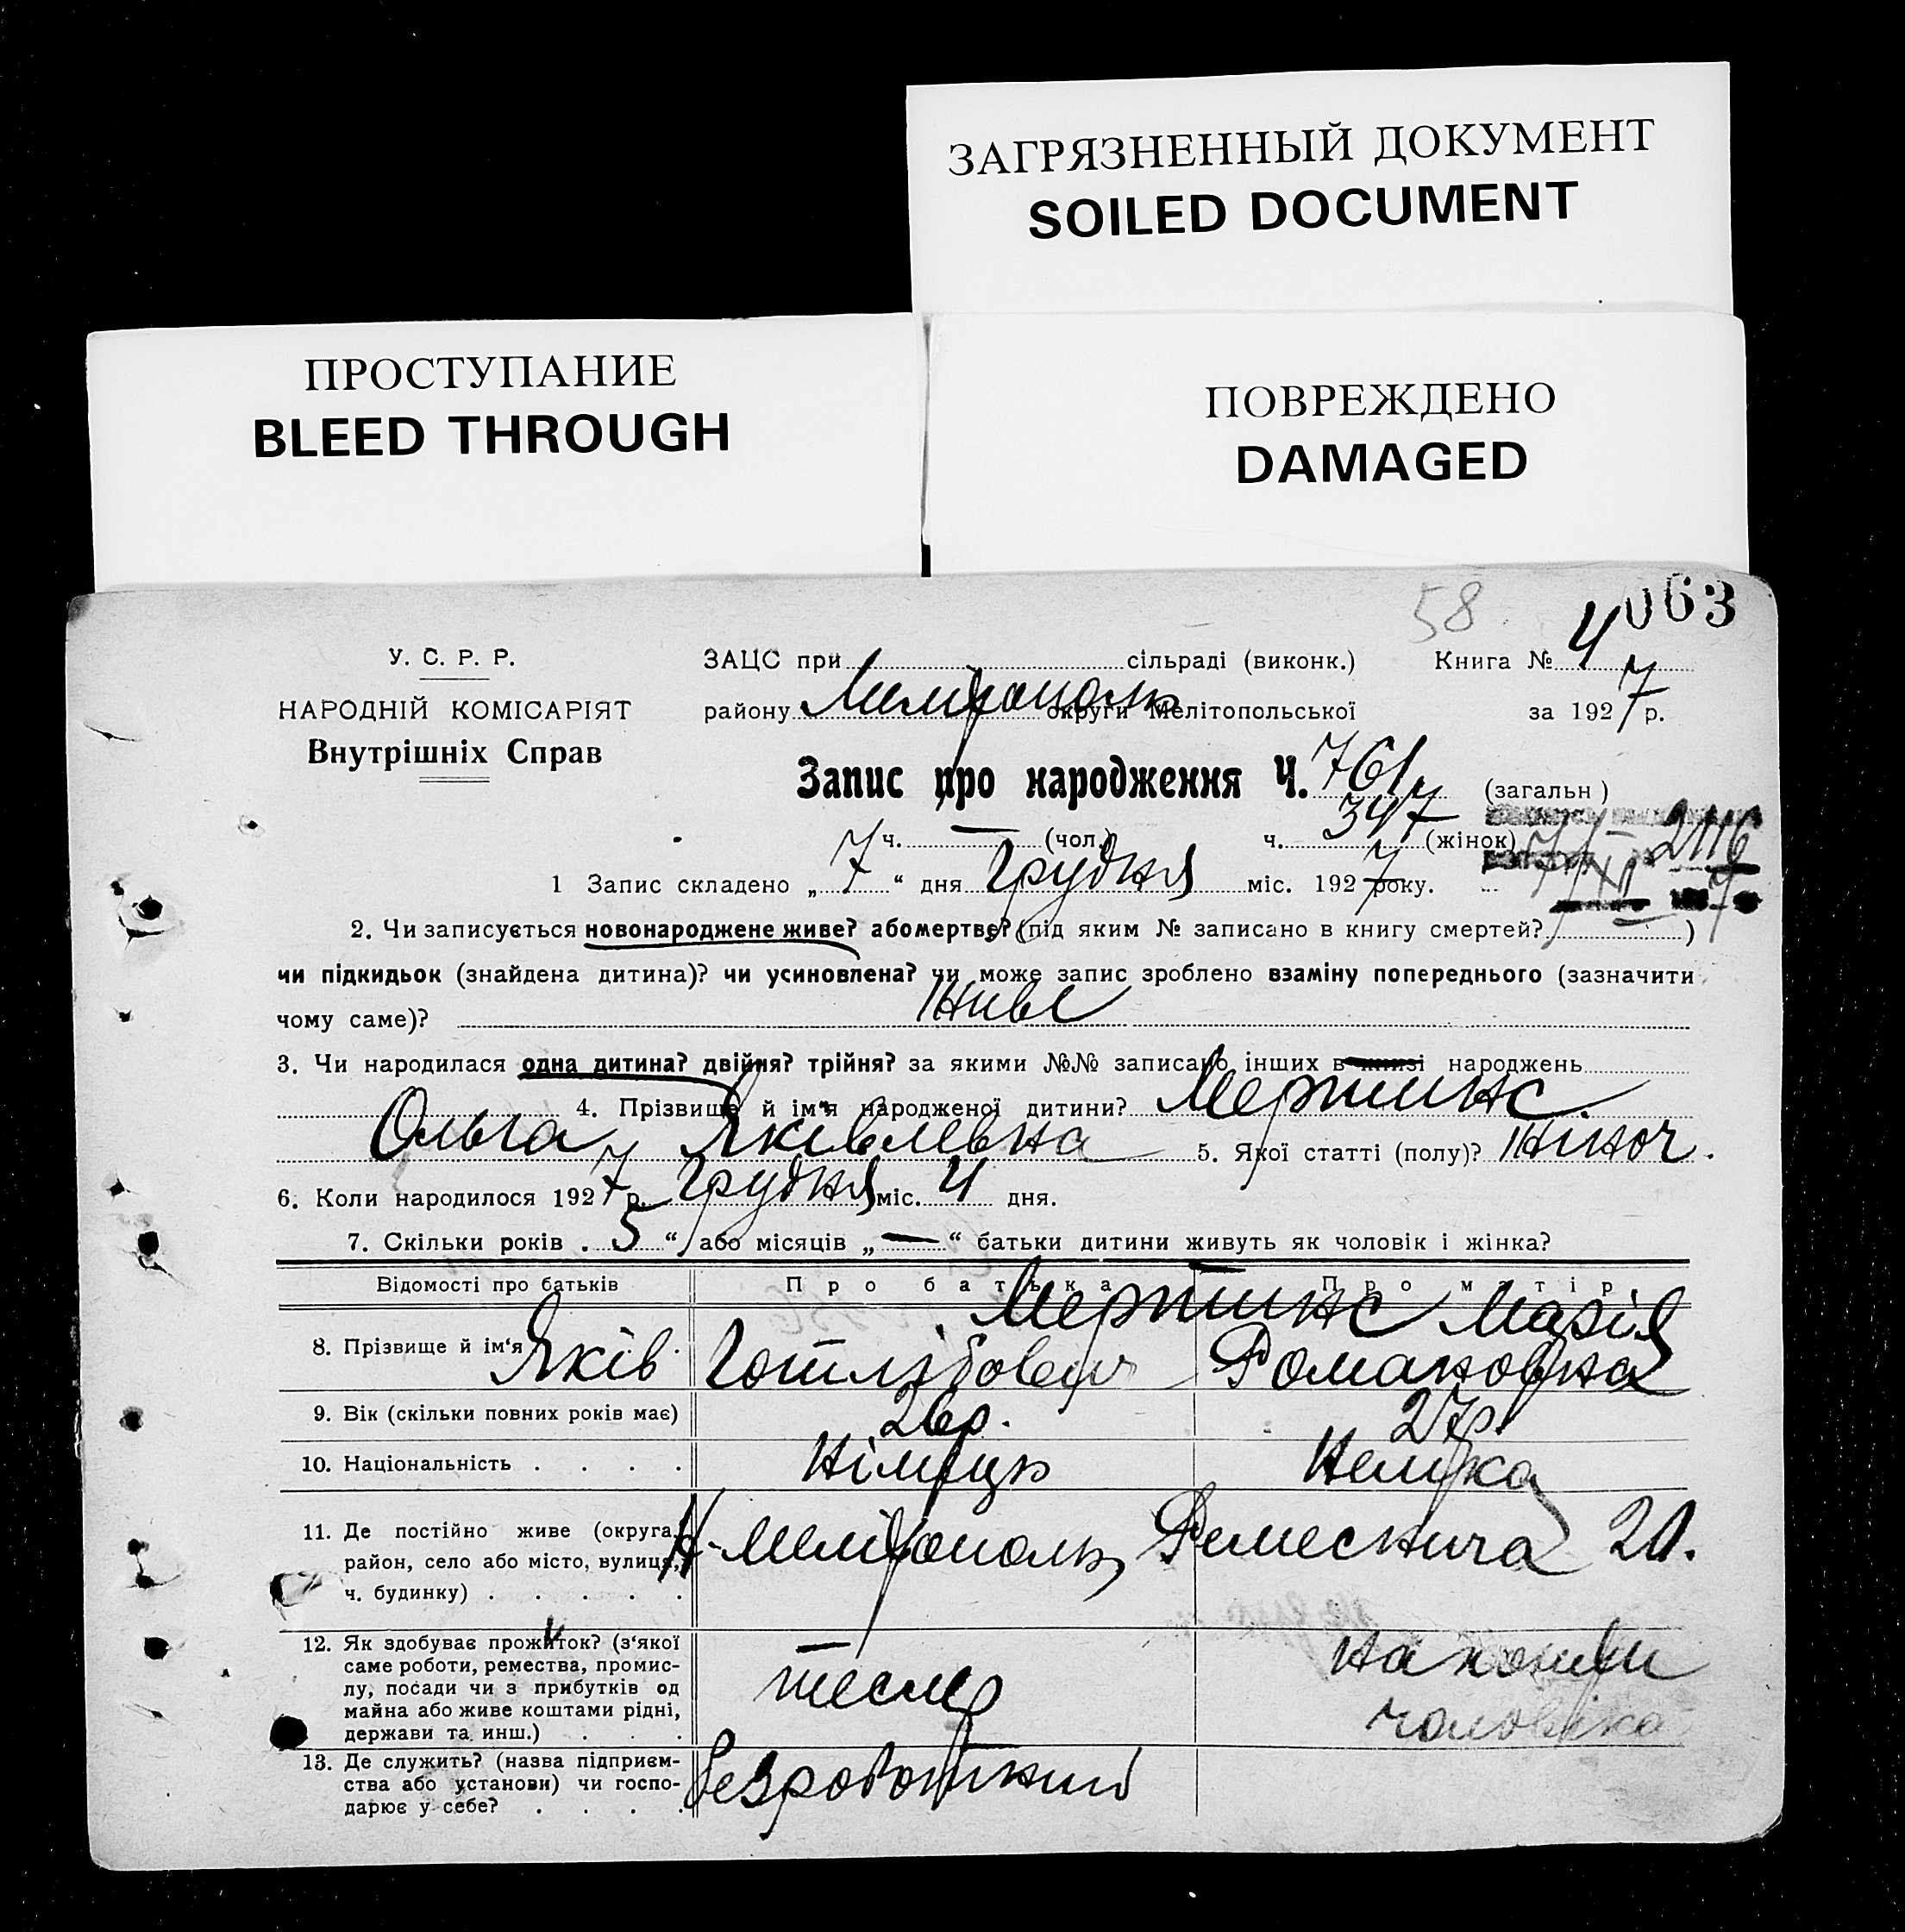 ЗАГРЯЗНЕННЫЙ ДОКУМЕНТ
SOILED DOCUMENT
ПРОСТУПАНИЕ
BLEED THROUGH
ПОВРЕЖДЕНО
DAMAGED
58
063
У. С. Р. Р.
НАРОДНІЙ КОМІСАРІЯТ
Внутрішніх Справ
ЗАЦС при сільраді (виконк.) Книга № 4
району Мелітополь округи Мелітопольської за 1927 р.
Запис про народження Ч. 761 (загальн)
ч. — (чол.) ч. 347 (жінок)
1 Запис складено „ 7 “ дня Грудня міс. 1927 року.
2. Чи записується новонароджене живе? або мертве? (під яким № записано в книгу смертей? )
чи підкидьок (знайдена дитина)? чи усиновлена? чи може запис зроблено взаміну попереднього (зазначити
чому саме)? Живе
3. Чи народилася одна дитина? двійня? трійня? за якими №№ записано інших в книзі народжень
4. Прізвище й ім'я народженої дитини? Мертинс
Ольга Яківлевна 5. Якої статті (полу)? Жіноч.
6. Коли народилося 1927 р. Грудня міс. 4 дня.
7. Скільки років . 5 “ або місяців „ — “ батьки дитини живуть як чоловік і жінка?
Відомості про батьків Про батька Про матір
Мертинс Марія
8. Прізвище й ім'я Яків Готлібович Романовна
9. Вік (скільки повних років має) 26р. 27р.
10. Національність . . . . Німець Немка
11. Де постійно живе (округа,
район, село або місто, вулиця,
ч. будинку) . . . . .
Мелітополь,
12. Як здобуває прожиток? (з'якої
саме роботи, ремества, промис-
лу, посади чи з прибутків од
майна або живе коштами рідні,
держави та инш.) . . .
тесля
чоловіка
13. Де служить? (назва підприєм-
ства або установи) чи госпо-
дарює у себе? . . . .
безработний